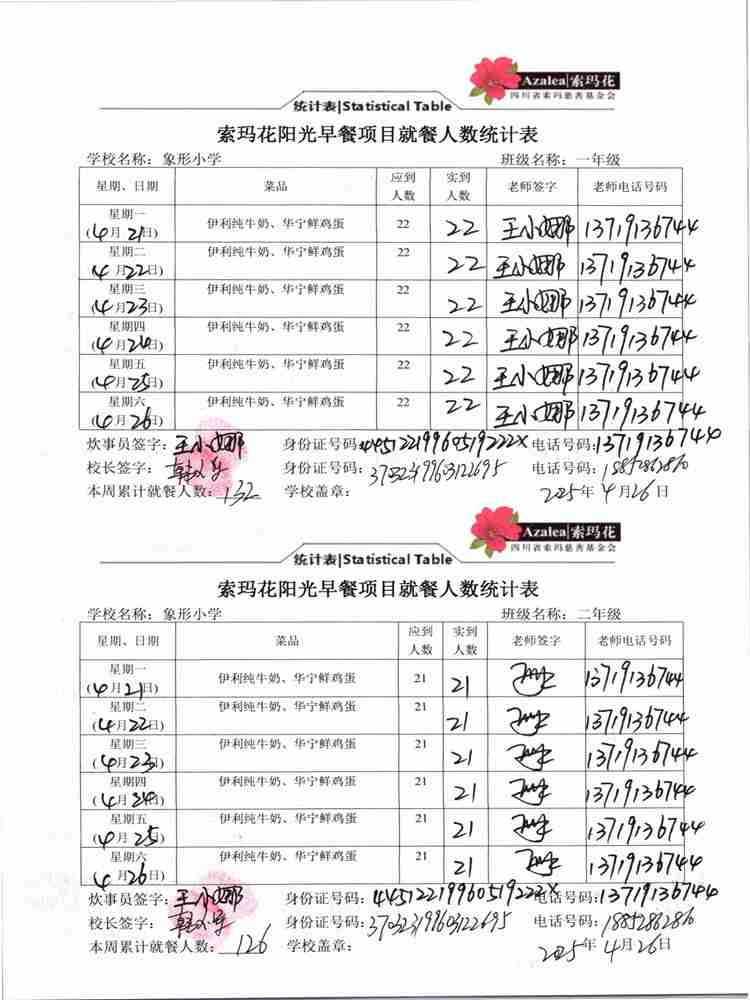 Azalea|索玛花
四川省索玛慈善基金会
统计表|Statistical Table
索玛花阳光早餐项目就餐人数统计表
学校名称：象形小学 班级名称：一年级
星期、日期 菜品 应到人数 实到人数 老师签字 老师电话号码
星期一 (4月21日) 伊利纯牛奶、华宁鲜鸡蛋 22 22 王小娜 13719136744
星期二 (4月22日) 伊利纯牛奶、华宁鲜鸡蛋 22 22 王小娜 13719136744
星期三 (4月23日) 伊利纯牛奶、华宁鲜鸡蛋 22 22 王小娜 13719136744
星期四 (4月24日) 伊利纯牛奶、华宁鲜鸡蛋 22 22 王小娜 13719136744
星期五 (4月25日) 伊利纯牛奶、华宁鲜鸡蛋 22 22 王小娜 13719136744
星期六 (4月26日) 伊利纯牛奶、华宁鲜鸡蛋 22 22 王小娜 13719136744
炊事员签字：王小娜 身份证号码：44512219960519222X 电话号码：13719136744
校长签字： 身份证号码： 电话号码：
本周累计就餐人数：132 学校盖章： 2025年4月26日
Azalea|索玛花
四川省索玛慈善基金会
统计表|Statistical Table
索玛花阳光早餐项目就餐人数统计表
学校名称：象形小学 班级名称：二年级
星期、日期 菜品 应到人数 实到人数 老师签字 老师电话号码
星期一 (4月21日) 伊利纯牛奶、华宁鲜鸡蛋 21 21 13719136744
星期二 (4月22日) 伊利纯牛奶、华宁鲜鸡蛋 21 21 13719136744
星期三 (4月23日) 伊利纯牛奶、华宁鲜鸡蛋 21 21 13719136744
星期四 (4月24日) 伊利纯牛奶、华宁鲜鸡蛋 21 21 13719136744
星期五 (4月25日) 伊利纯牛奶、华宁鲜鸡蛋 21 21 13719136744
星期六 (4月26日) 伊利纯牛奶、华宁鲜鸡蛋 21 21 13719136744
炊事员签字：王小娜 身份证号码：44512219960519222X 电话号码：13719136744
校长签字： 身份证号码： 电话号码：
本周累计就餐人数：126 学校盖章： 2025年4月26日